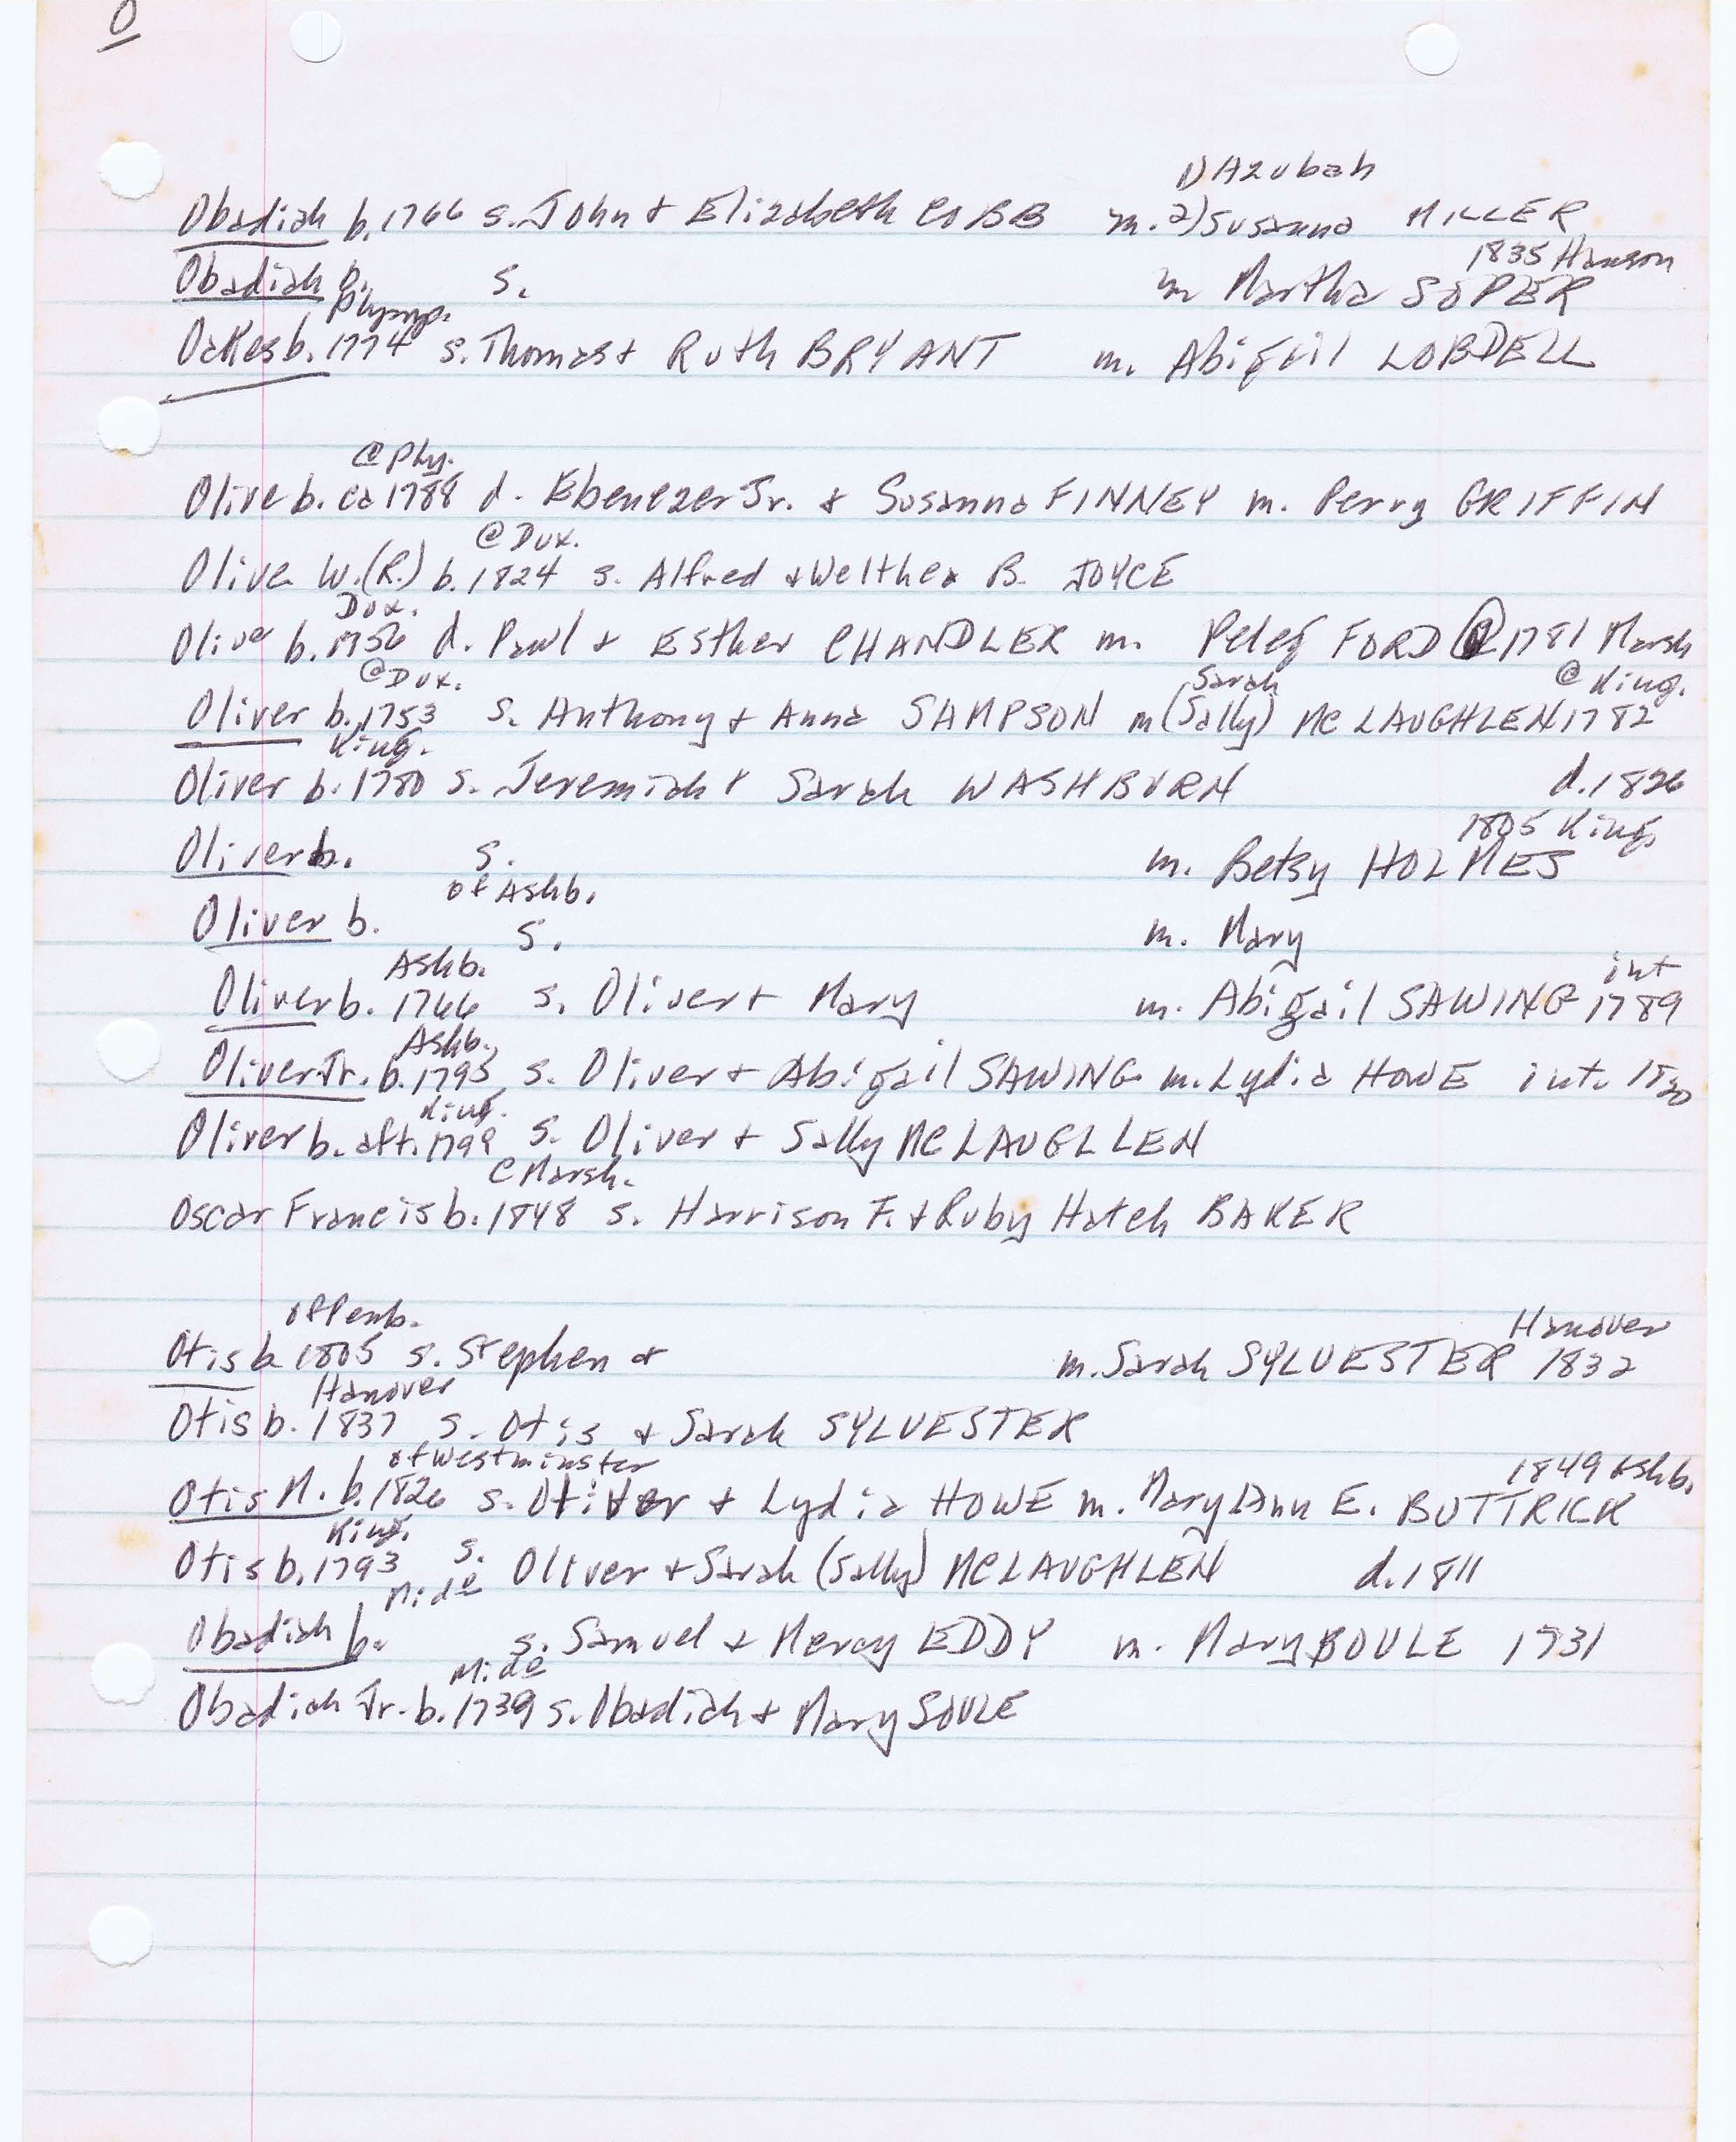 O
1) Azubah
Obadiah b. 1766 s. John & Elizabeth COBB m. 2) Susanna MILLER
1835 Hanson
Obadiah b. s. m Martha SOPER
Plymp.
Oakes b. 1774 s. Thomas & Ruth BRYANT m. Abigail LOBDELL
@ Ply.
Olive b. ca 1788 d. Ebenezer Jr. & Susanna FINNEY m. Perry GRIFFIN
@ Dux.
Olive W. (R.) b. 1824 s. Alfred & Welthea B. JOYCE
Dux.
Olive b. 1756 d. Paul & Esther CHANDLER m. Peleg FORD @ 1781 Marsh
@ Dux. Sarah @ King.
Oliver b. 1753 s. Anthony & Anna SAMPSON m (Sally) Mc LAUGHLEN 1782
King.
Oliver b. 1780 s. Jeremiah & Sarah WASHBURN d. 1826
1805 King.
Oliver b. s. m. Betsy HOLMES
of Ashb.
Oliver b. s. m. Mary
Ashb. int
Oliver b. 1766 s. Oliver & Mary m. Abigail SAWING 1789
Ashb.
Oliver Jr. b. 1793 s. Oliver & Abigail SAWING m. Lydia HOWE int.
King.
Oliver b. aft. 1799 s. Oliver & Sally McLAUGLLEN
@ Marsh.
Oscar Francis b. 1848 s. Harrison F. & Ruby Hatch BAKER
of Pemb. Hanover
Otis b 1805 s. Stephen & m. Sarah SYLVESTER 1832
Hanover
Otis b. 1837 s. Otis & Sarah SYLVESTER
of Westminster 1849 Ashb.
Otis M. b. 1826 s. & Lydia HOWE m. Mary Ann E. BUTTRICK
King.
Otis b. 1793 s. Oliver & Sarah (Sally) McLAUGHLEN d. 1811
Midé
Obadiah b. s. Samuel & Mercy EDDY m. Mary 1731
Midé
Obadiah Jr. b. 1739 s. Obadiah & Mary SOULE